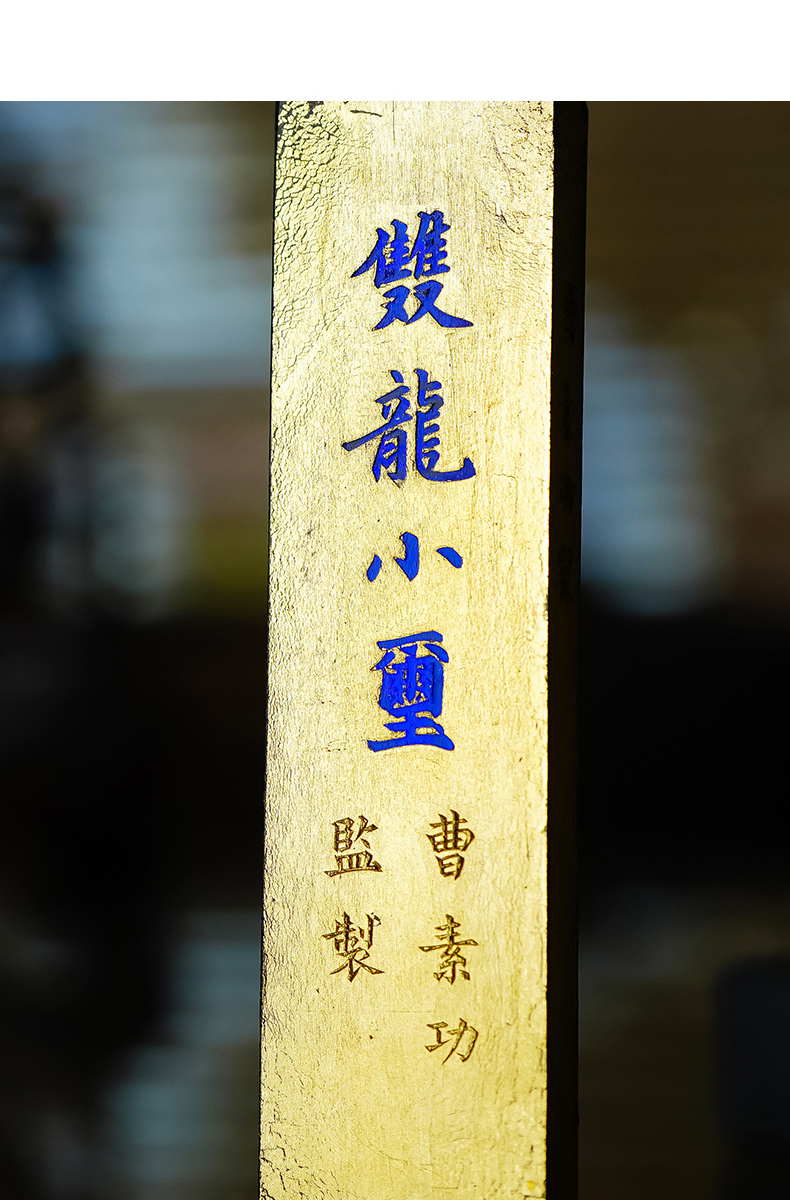 雙龍小璽
曹素功
監製